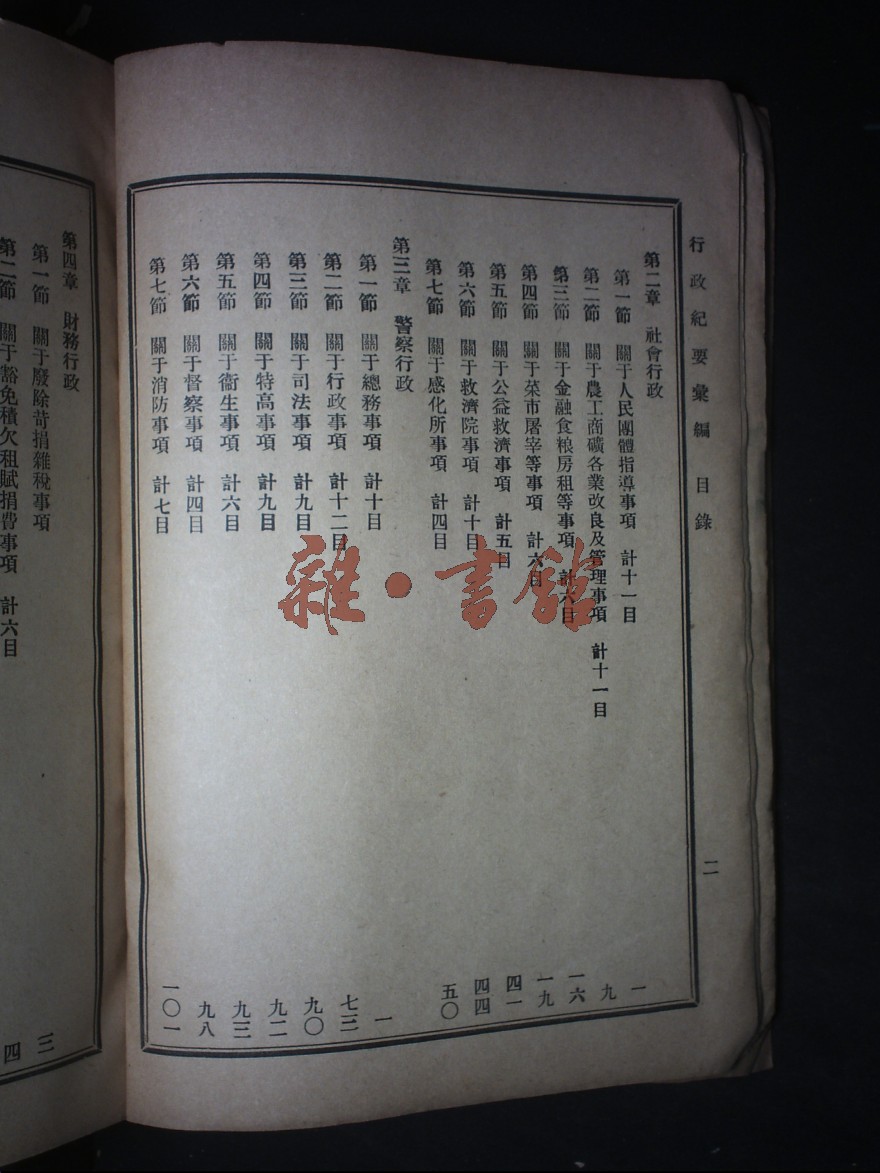 行政紀要彙編　目錄　二
第二章　社會行政
第一節　關于人民團體指導事項　計十一目　一
第二節　關于農工商礦各業改良及管理事項　計十一目　九
第三節　關于金融食粮房租等事項　計六目　一六
第四節　關于菜市屠宰等事項　計六目　一九
第五節　關于公益救濟事項　計五目　四一
第六節　關于救濟院事項　計十目　四四
第七節　關于感化所事項　計四目　五〇
第三章　警察行政
第一節　關于總務事項　計十目　一
第二節　關于行政事項　計十二目　七三
第三節　關于司法事項　計九目　九〇
第四節　關于特高事項　計九目　九二
第五節　關于衞生事項　計六目　九三
第六節　關于督察事項　計四目　九八
第七節　關于消防事項　計七目　一〇一
第四章　財務行政
第一節　關于廢除苛捐雜稅事項　三
第二節　關于豁免積欠租賦捐費事項　計六目　四
雜·書館